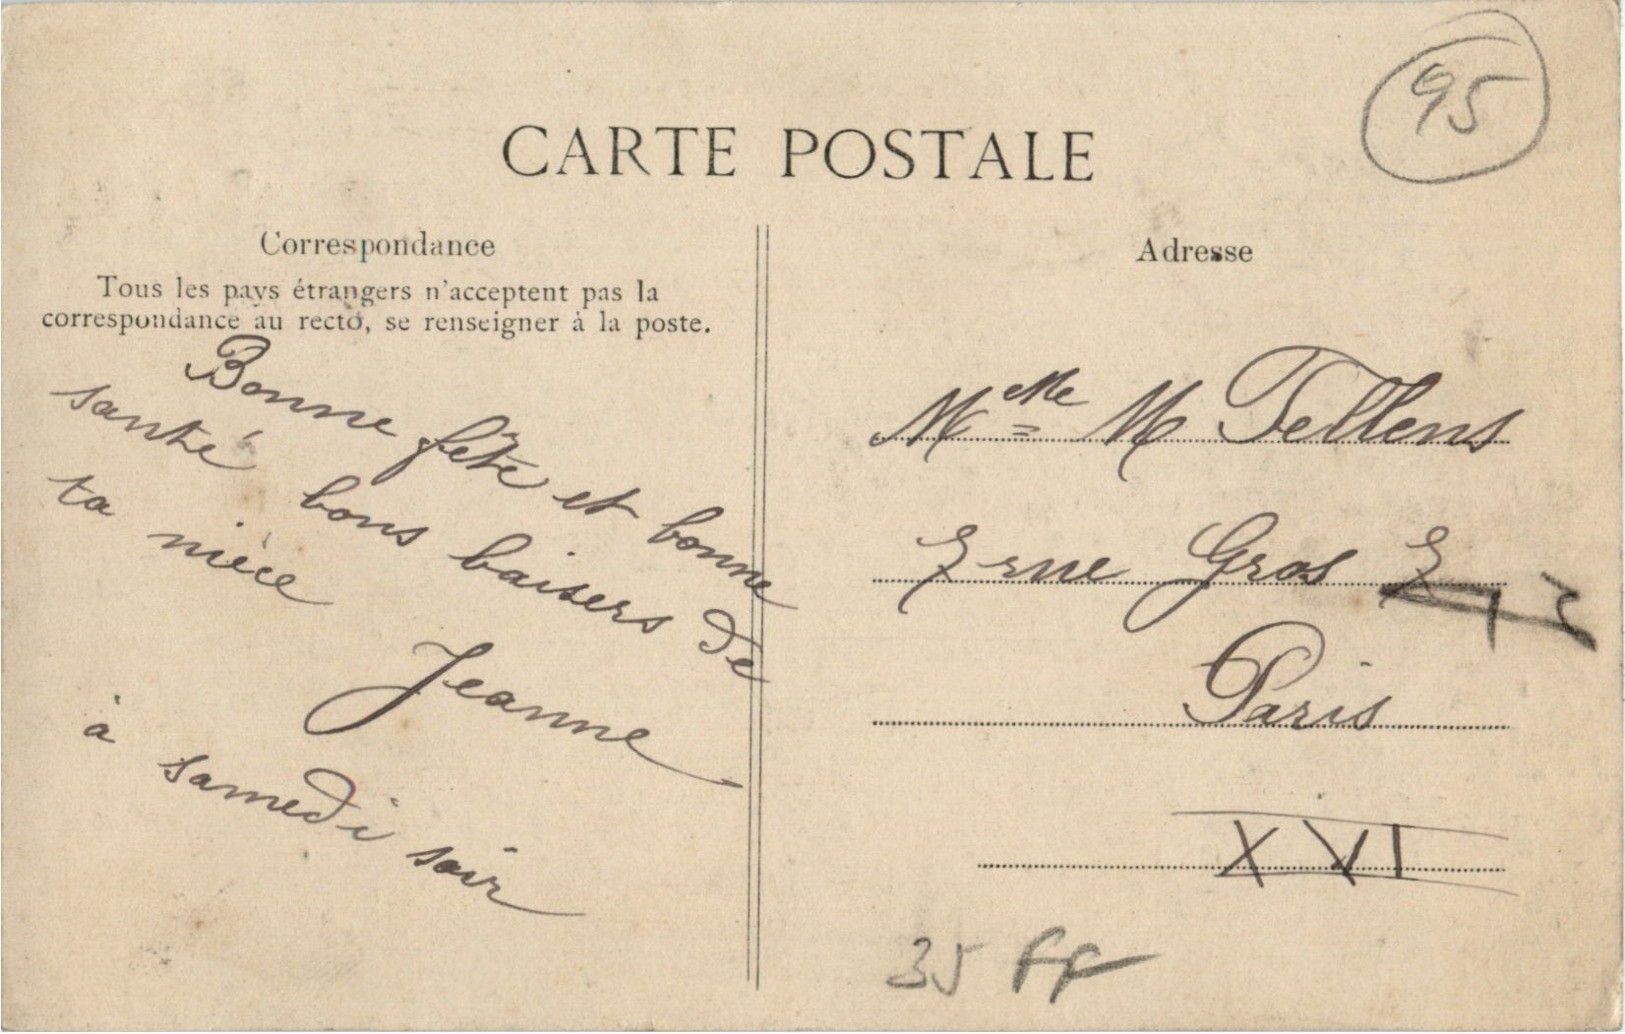 95
CARTE POSTALE
Correspondance
Tous les pays étrangers n'acceptent pas la
correspondance au recto, se renseigner à la poste.
Bonne fête et bonne
santé bons baisers de
ta nièce
Jeanne
à samedi soir
Adresse
Melle M Tellens
rue Gros
Paris
XVI
35 ff